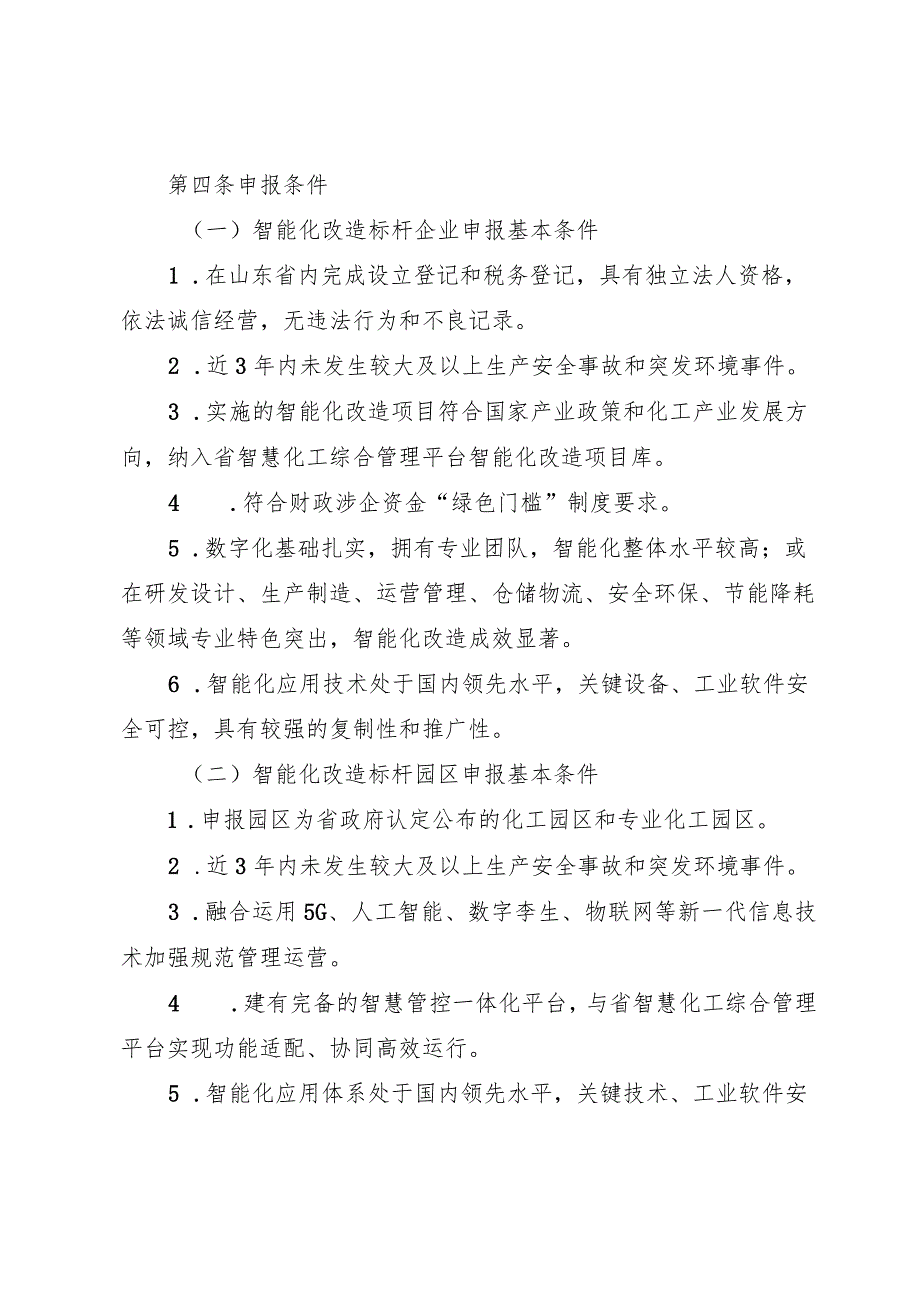 第四条申报条件
（一）智能化改造标杆企业申报基本条件
1 .在山东省内完成设立登记和税务登记，具有独立法人资格，
依法诚信经营，无违法行为和不良记录。
2 .近3年内未发生较大及以上生产安全事故和突发环境事件。
3 .实施的智能化改造项目符合国家产业政策和化工产业发展方
向，纳入省智慧化工综合管理平台智能化改造项目库。
4 .符合财政涉企资金“绿色门槛”制度要求。
5 .数字化基础扎实，拥有专业团队，智能化整体水平较高；或
在研发设计、生产制造、运营管理、仓储物流、安全环保、节能降耗
等领域专业特色突出，智能化改造成效显著。
6 .智能化应用技术处于国内领先水平，关键设备、工业软件安
全可控，具有较强的复制性和推广性。
（二）智能化改造标杆园区申报基本条件
1 .申报园区为省政府认定公布的化工园区和专业化工园区。
2 .近3年内未发生较大及以上生产安全事故和突发环境事件。
3 .融合运用5G、人工智能、数字李生、物联网等新一代信息技
术加强规范管理运营。
4 .建有完备的智慧管控一体化平台，与省智慧化工综合管理
平台实现功能适配、协同高效运行。
5 .智能化应用体系处于国内领先水平，关键技术、工业软件安